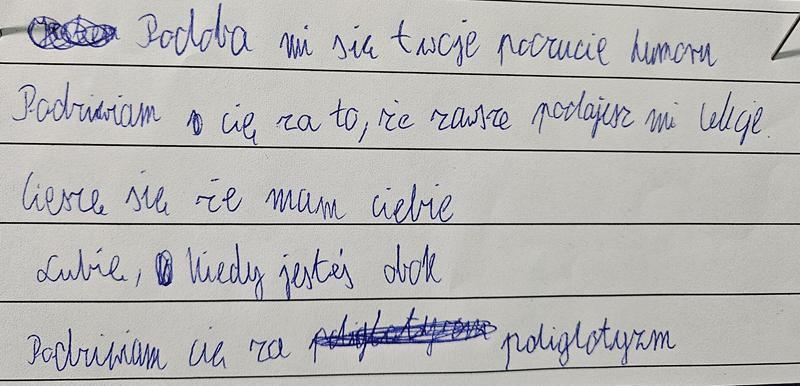 Podoba mi się twoje poczucie humoru
Podziwiam cię za to, że zawsze podajesz mi lekcje.
Cieszę się że mam ciebie
Lubię, kiedy jesteś obok
Podziwiam cię za poliglotyzm poliglotyzm